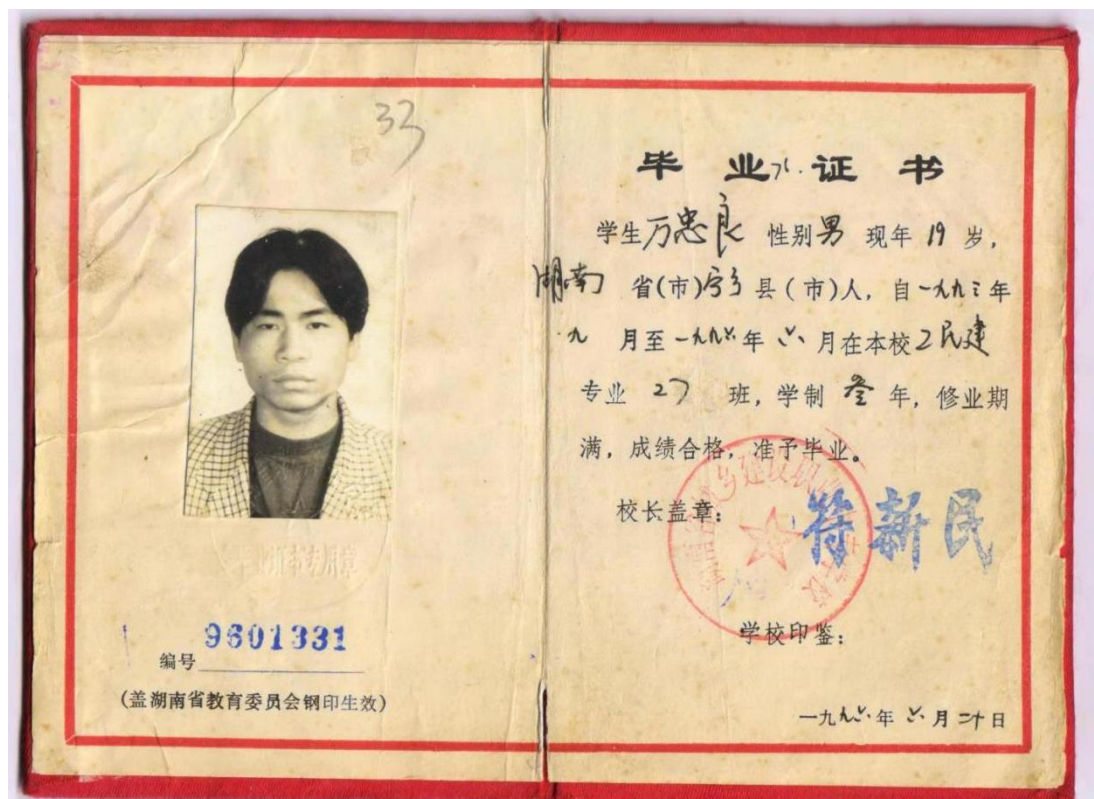 33
9601331
编号
(盖湖南省教育委员会钢印生效)
毕业证书
学生万忠良 性别男 现年 19 岁,
湖南 省(市)宁乡县(市)人, 自一九九三年
九 月至一九九六年 六 月在本校工民建
专业 27 班, 学制 叁 年, 修业期
满, 成绩合格, 准予毕业。
校长盖章: 符新民
学校印鉴:
一九九六年 六 月二十日